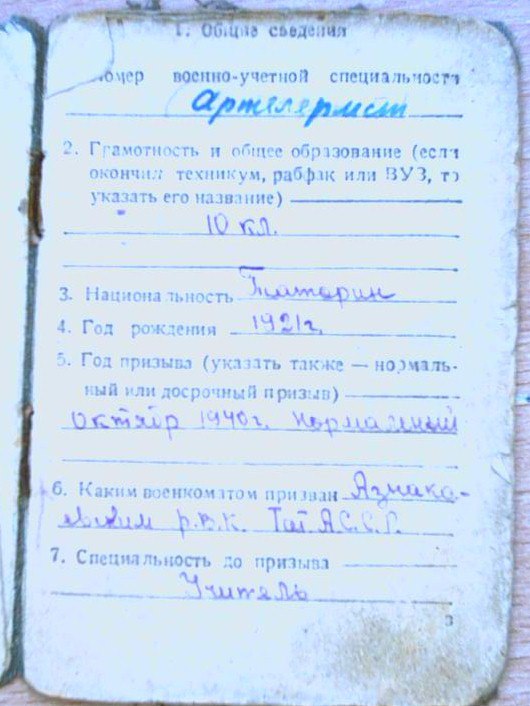 I. Общие сведения
номер военно-учетной специальности
Артелермст
2. Грамотность и общее образование (если
окончил техникум, рабфак или ВУЗ, то
указать его название)
10 кл.
3. Национальность Татарин
4. Год рождения 1921г.
5. Год призыва (указать также — нормаль-
ный или досрочный призыв)
Октябр 1940г. нормалный
6. Каким военкоматом призван Азнака-
евским р.в.к. Тат.А.С.С.Р.
7. Специальность до призыва
Учитель
3